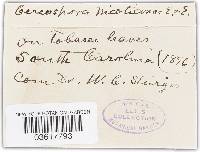 Cercospora Nicotianae E. & E.
on Tobacco leaves
South Carolina (1896)
Com. Dr. W. C. Sturgis
NEW YORK BOTANICAL GARDEN
03617793
ELLIS
COLLECTION